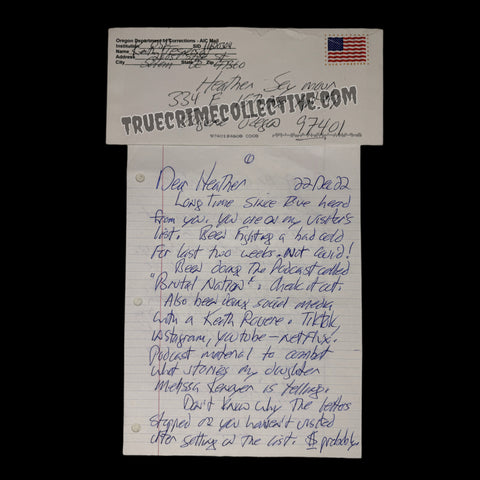 Oregon Department of Corrections - AIC Mail
Institution OSP SID
Name Keith
Address
City Salem State OR Zip
Heather
334
TRUECRIMECOLLECTIVE.COM
Eugene Oregon
97401
①
Dear Heather 22 Dec 22
Long Time since I've heard
from you. you are on my visitor's
list. Been fighting a bad cold
for last two weeks. Not Covid!
Been doing the Podcast called
"Brutal Nation". Check it out.
Also been doing social media
with a Keith Rovere. TikTok
instagram, youtube - netflix.
Podcast material to combat
what stories my daughter
Melissa is telling.
Don't know why the letters
stopped or you haven't visited
after getting on the list. probably